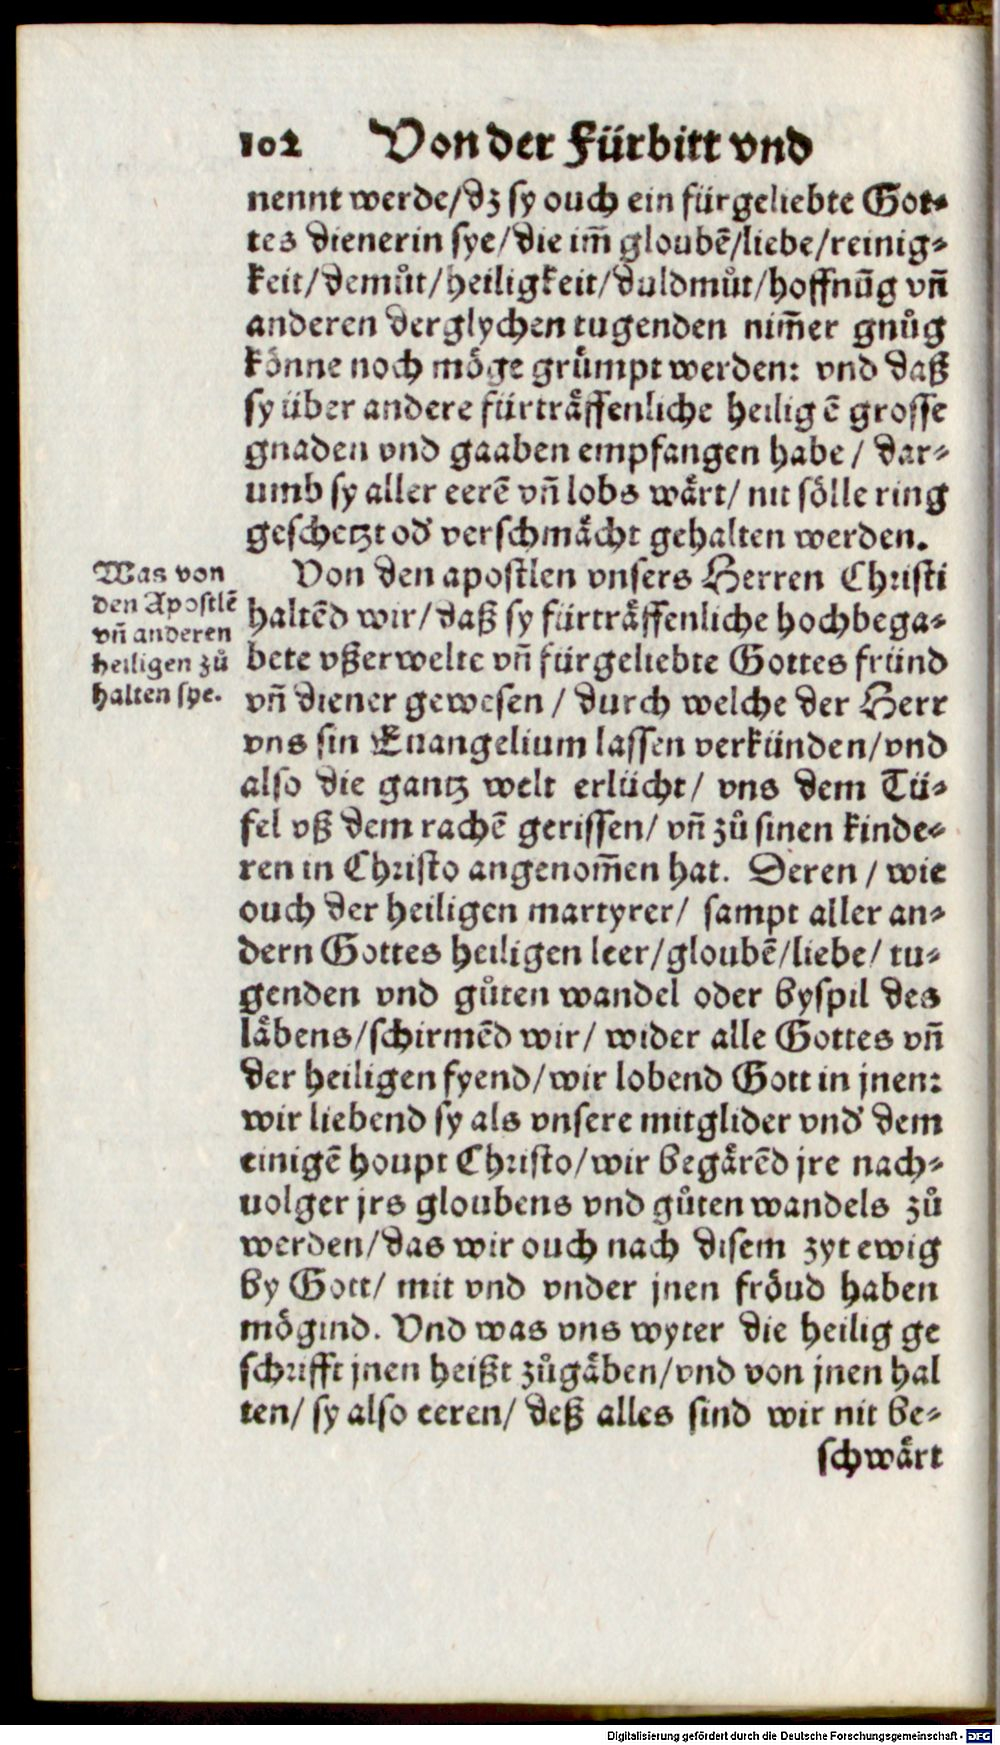 102 Von der Fürbitt vnd
nennt werde/dz sy ouch ein fürgeliebte Got⸗
tes dienerin sye/die im̃ gloubẽ/liebe/reinig⸗
keit/demůt/heiligkeit/duldmůt/hoffnũg vñ
anderen derglychen tugenden nim̃er gnůg
koͤnne noch moͤge gruͤmpt werden: vnd daß
sy über andere fürtraͤffenliche heiligẽ grosse
gnaden vnd gaaben empfangen habe/ dar⸗
umb sy aller eerẽ vñ lobs waͤrt/ nit soͤlle ring
geschetzt od' verschmaͤcht gehalten werden.
Von den apostlen vnsers Herren Christi
haltẽd wir/daß sy fürtraͤffenliche hochbega⸗
bete vßerwelte vñ fürgeliebte Gottes fründ
vñ diener gewesen / durch welche der Herr
vns sin Euangelium lassen verkünden/vnd
also die gantz welt erlücht/ vns dem Tü⸗
fel vß dem rachẽ gerissen/ vñ zů sinen kinde⸗
ren in Christo angenom̃en hat. Deren / wie
ouch der heiligen martyrer/ sampt aller an⸗
dern Gottes heiligen leer/gloubẽ/liebe/ tu⸗
genden vnd gůten wandel oder byspil des
laͤbens/schirmẽd wir/ wider alle Gottes vñ
der heiligen fyend/wir lobend Gott in jnen:
wir liebend sy als vnsere mitglider vnd' dem
einigẽ houpt Christo/wir begaͤrẽd jre nach⸗
uolger jrs gloubens vnd gůten wandels zů
werden/das wir ouch nach disem zyt ewig
by Gott/ mit vnd vnder jnen froͤud haben
moͤgind. Vnd was vns wyter die heilig ge
schrifft jnen heißt zůgaͤben/vnd von jnen hal
ten/ sy also eeren/ deß alles sind wir nit be⸗
schwaͤrt
Was von
den Apostlẽ
vñ anderen
heiligen zů
halten sye.
Digitalisierung gefördert durch die Deutsche Forschungsgemeinschaft - DFG